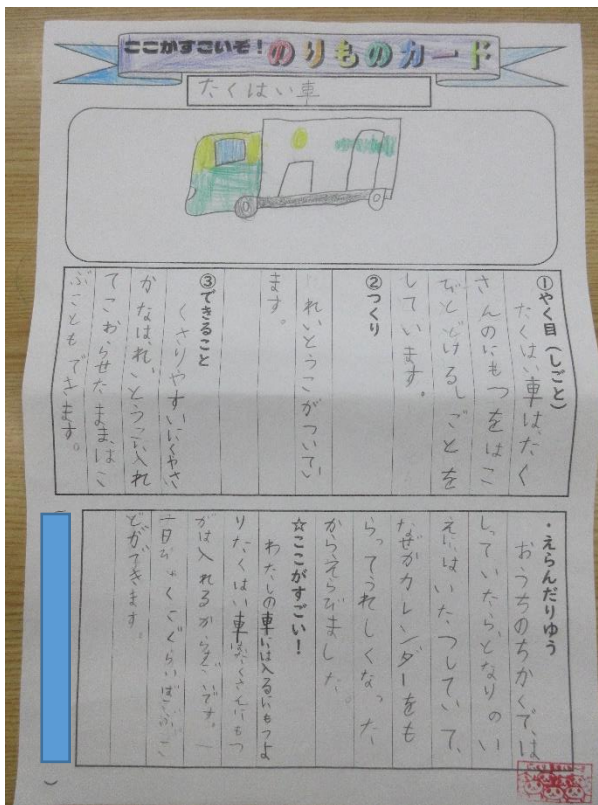 ここがすごいぞ！のりものカード
たくはい車
①やく目（しごと）
たくはい車は、たく
さんのにもつをはこ
びとどけるしごとを
しています。
②つくり
れいとうこがついてい
ます。
③できること
くさりやすいにくやさ
かなは、れいとうこに入れ
てこおらせたまま、はこ
ぶこともできます。
・えらんだりゆう
おうちのちかくで、は
しっていたら、となりのい
えにはいたつしていて、
なぜかカレンダーをも
らってうれしくなった
からえらびました。
☆ここがすごい！
わたしの車には入るにもつよ
りたくはい車はたくさんにもつ
がは入れるからすごいです。一
日ひゃくこぐらいはこぶこ
とができます。